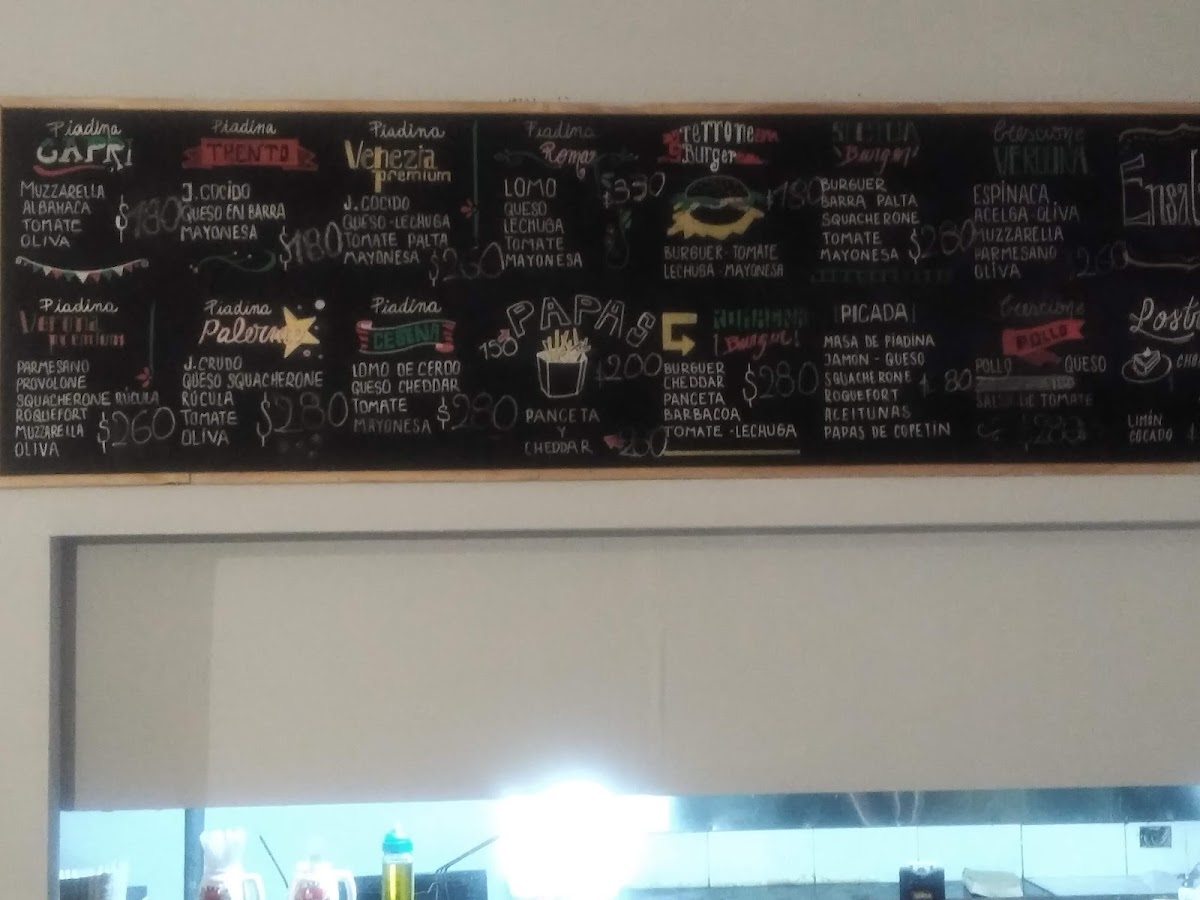 Piadina
CAPRI
MUZZARELLA
ALBAHACA
TOMATE
OLIVA
$180
Piadina
TRENTO
J. COCIDO
QUESO EN BARRA
MAYONESA
$180
Piadina
Venezia
premium
J. COCIDO
QUESO - LECHUGA
TOMATE PALTA
MAYONESA
$260
Piadina
Roma
LOMO
QUESO
LECHUGA
TOMATE
MAYONESA
$330
Terrone
Burger
$180
BURGUER - TOMATE
LECHUGA - MAYONESA
Burger!
BURGUER
BARRA PALTA
SQUACHERONE
TOMATE
MAYONESA
$280
Crescione
ESPINACA
ACELGA - OLIVA
MUZZARELLA
PARMESANO
OLIVA
260
Ensal
Piadina
Verona
premium
PARMESANO
PROVOLONE
SQUACHERONE RÚCULA
ROQUEFORT
MUZZARELLA
OLIVA
$260
Piadina
Palermo
J. CRUDO
QUESO SQUACHERONE
RÚCULA
TOMATE
OLIVA
$280
Piadina
CESENA
LOMO DE CERDO
QUESO CHEDDAR
TOMATE
MAYONESA
$280
PAPAS
150
$200
PANCETA
Y
CHEDDAR
250
ROMAGNA
Burger!
BURGUER
CHEDDAR
PANCETA
BARBACOA
TOMATE - LECHUGA
$280
PICADA
MASA DE PIADINA
JAMON - QUESO
SQUACHERONE
ROQUEFORT
ACEITUNAS
PAPAS DE COPETIN
80
Crescione
POLLO
POLLO QUESO
SALSA DE TOMATE
$280
Post
CHO
LIMÓN
COCADO